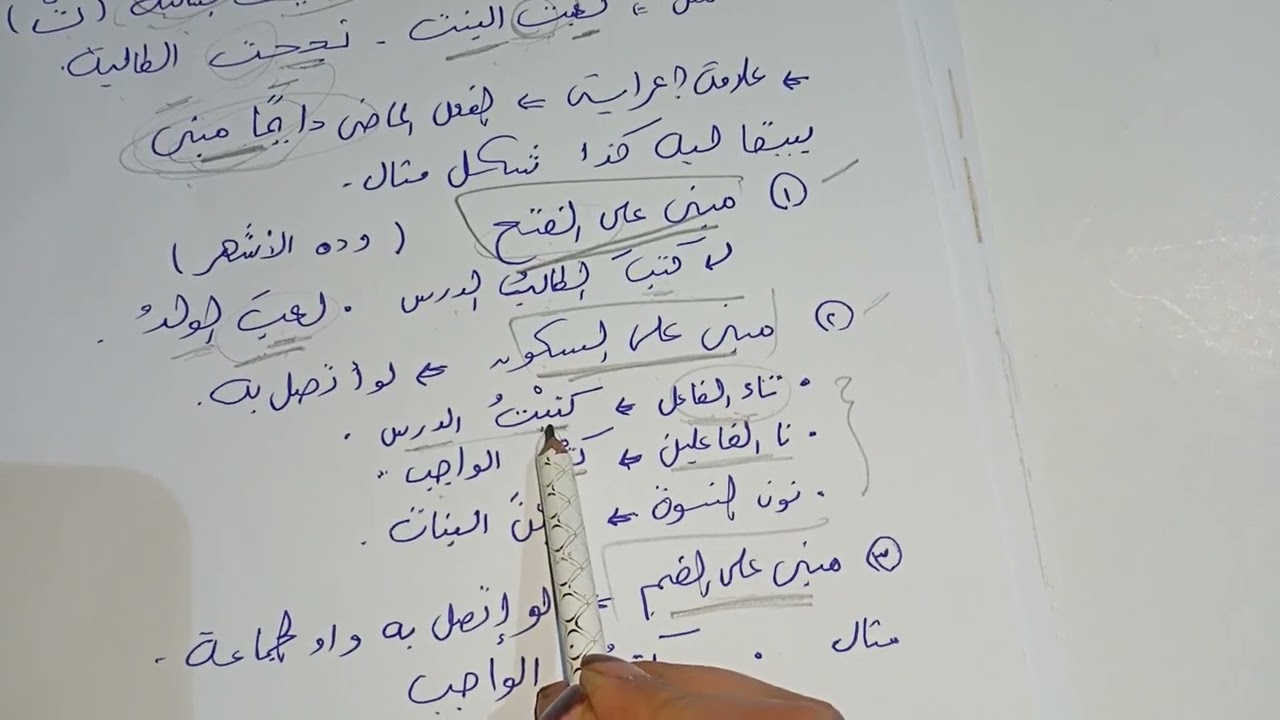 لعبت البنت . نجحت الطالبة . (تْ)
← علامة إعرابية ← الفعل الماضى دايمًا مبنى
يبقا ليه كذا شكل مثال .
① مبنى على الفتح (وده الأشهر)
كتبَ الطالبُ الدرس . لعبَ الولدُ .
② مبنى على السكون ← لو أتصل به .
. تاء الفاعل ← كتبْتُ الدرس .
. نا الفاعلين ← الواجب .
. نون النسوة ← البنات .
③ مبنى على الضم = لو إتصل به واو الجماعة .
مثال . الواجب